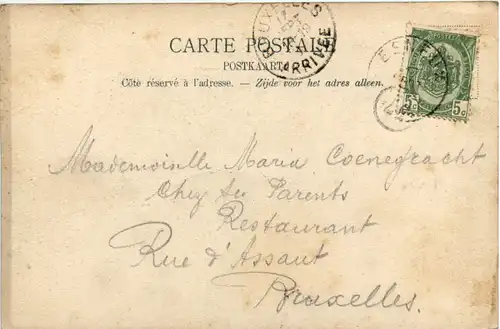 CARTE POSTALE
POSTKAART
Côté réservé à l'adresse. - Zijde voor het adres alleen.
BRUXELLES
ARRIVÉE
5c 5c
Mademoiselle Maria Coenegracht
Chez ses Parents
Restaurant
Rue d'Assaut
Bruxelles.